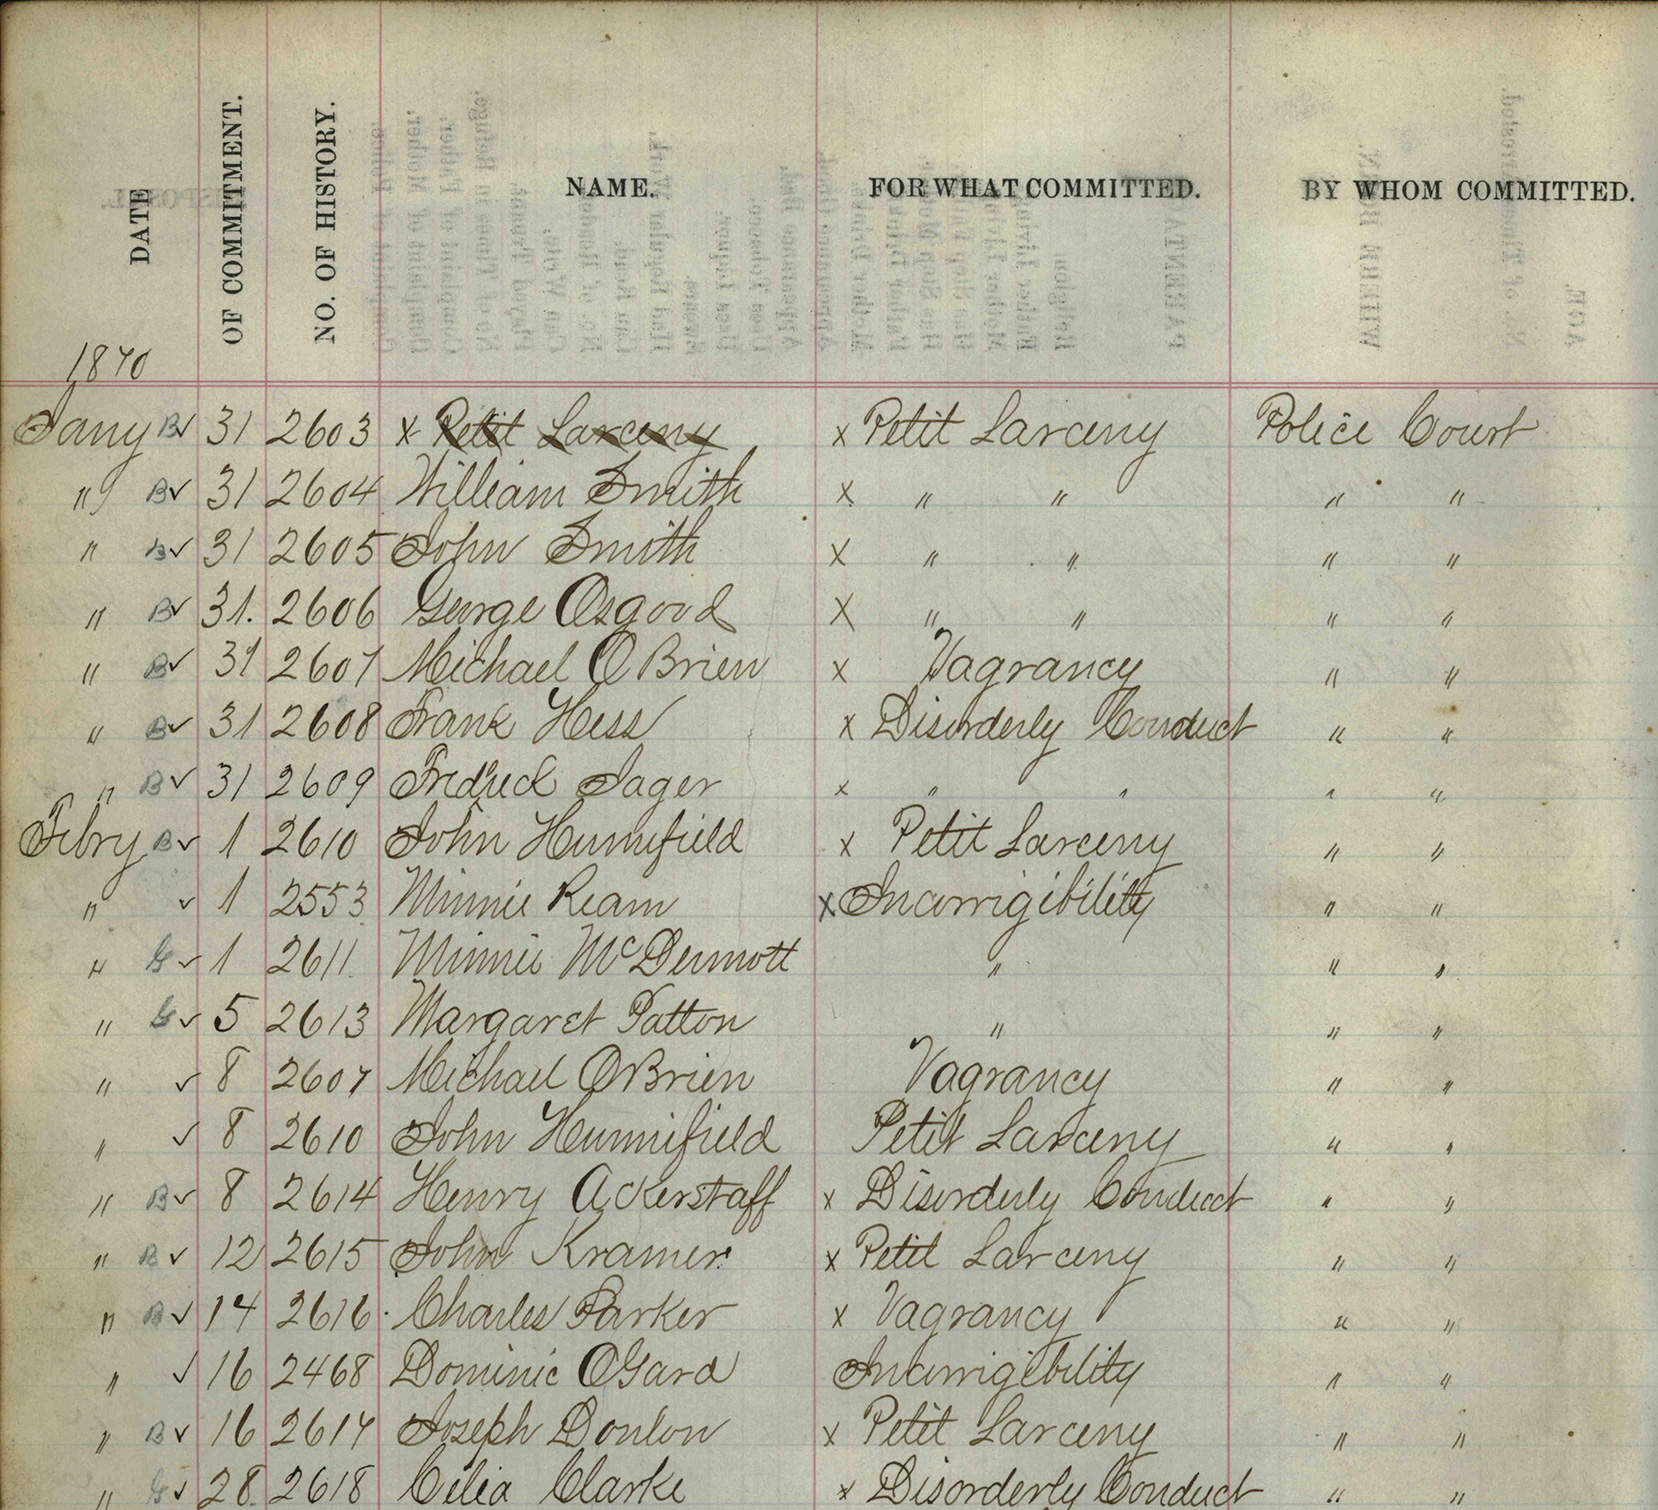 DATE OF COMMITMENT. NO. OF HISTORY. NAME. FOR WHAT COMMITTED. BY WHOM COMMITTED.
1870
Jany B✓ 31 2603 x Petit Larceny x Petit Larceny Police Court
" B✓ 31 2604 William Smith x " " " "
" B✓ 31 2605 John Smith x " " " "
" B✓ 31. 2606 George Osgood x " " " "
" B✓ 31 2607 Michael O Brien x Vagrancy " "
" B✓ 31 2608 Frank Hess x Disorderly Conduct " "
" B✓ 31 2609 Fredrick Sager x " " " "
Febry B✓ 1 2610 John Hunnifield x Petit Larceny " "
" ✓ 1 2553 Minnie Ream x Incorrigibility " "
" G✓ 1 2611. Minnie McDermott " " "
" G✓ 5 2613 Margaret Patton " " "
" ✓ 8 2607 Michael OBrien Vagrancy " "
" ✓ 8 2610 John Hunnifield Petit Larceny " "
" B✓ 8 2614 Henry Ackerstaff x Disorderly Conduct " "
" B✓ 12 2615 John Kramer x Petit Larceny " "
" B✓ 14 2616 Charles Parker x Vagrancy " "
" ✓ 16 2468 Dominic OGara Incorrigibility " "
" B✓ 16 2617 Joseph Donlon x Petit Larceny " "
" G✓ 28. 2618 Celia Clarke x Disorderly Conduct " "